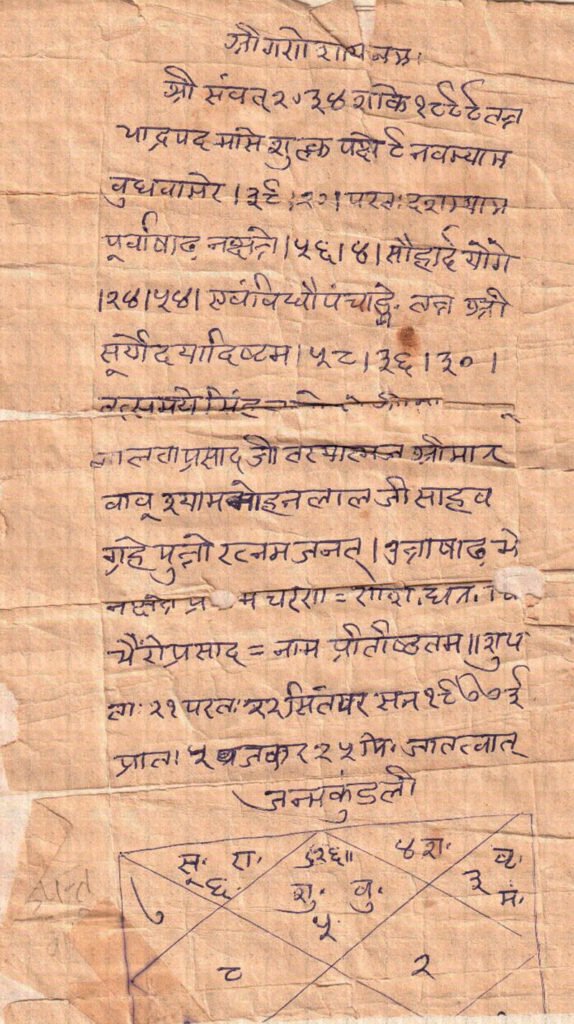 श्री गणेशाय नमः
श्री संवत् २०३४ शाके १८९९ तत्र
भाद्रपद मासे शुल्क पक्षे ९ नवम्याम
वुधवासरे । ३९ । २० । परतः दशम्याम
पूर्वाषाढ़ नक्षत्रे । ५६ । ४ । सौहार्द योगे
। २४ । ५४ । एवंविधौ पंचाङ्गे तत्र श्री
सूर्योदयादिष्टम । ५८ । ३६ । ३० ।
तत्समये सिंह
प्रसाद जी तस्यात्मज श्रीमान
वावू श्याममोहनलाल जी साहव
ग्रहे पुत्रो रत्नम जनत् । उत्राषाढ़ मे
नक्षत्र चरण =
भैरोप्रसाद = नाम प्रतीष्ठतम ॥ शुभ
ताः २१ परतः २२ सितंवर सन १९७७ ई
प्रातः ५ वजकर २५ मि. जातत्वात्
जन्मकुंडली
सू. रा. ४ श. वृ.
६ ३ मं.
७ शु. वु.
५
८ २